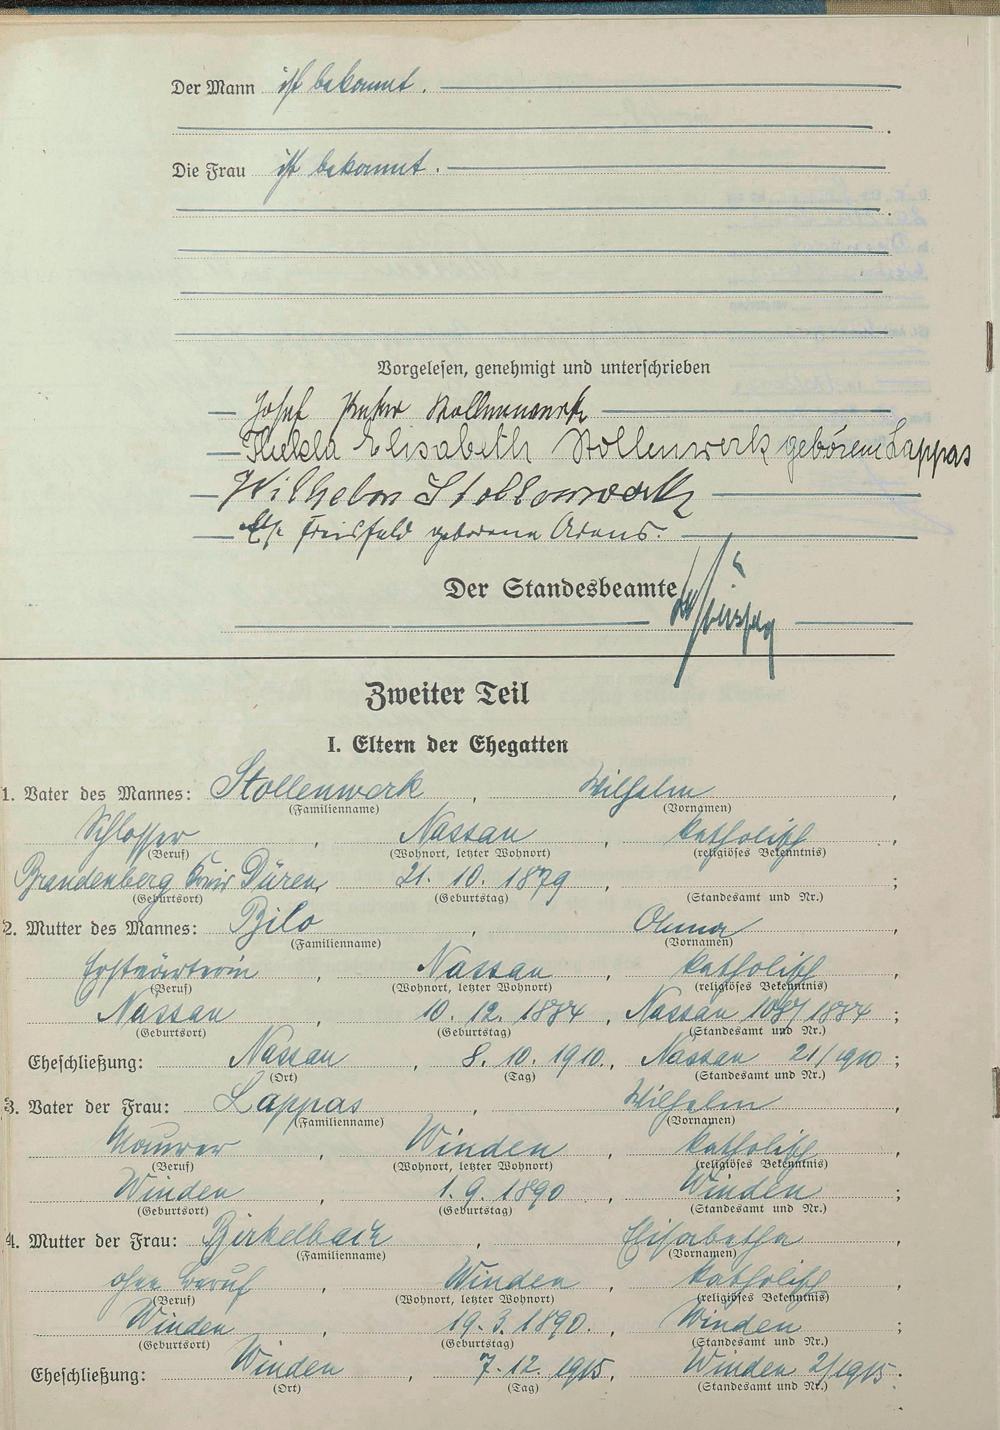 Der Mann ist bekannt.
Die Frau ist bekannt.
Vorgelesen, genehmigt und unterschrieben
Josef Stollenwerk
Thekla Elisabeth Stollenwerk geborene Lappas
Wilhelm Stollenwerk
Freisfeld geborene Arens.
Der Standesbeamte
Zweiter Teil
I. Eltern der Ehegatten
1. Vater des Mannes: Stollenwerk, Wilhelm,
(Familienname) (Vornamen)
Schlosser, Nassau, katholisch,
(Beruf) (Wohnort, letzter Wohnort) (religiöses Bekenntnis)
Brandenberg Kreis Düren, 21. 10. 1879 ;
(Geburtsort) (Geburtstag) (Standesamt und Nr.)
2. Mutter des Mannes: Bilo,
(Familienname) (Vornamen)
Nassau, katholisch,
(Beruf) (Wohnort, letzter Wohnort) (religiöses Bekenntnis)
Nassau, 10. 12. 1884, Nassau 1884;
(Geburtsort) (Geburtstag) (Standesamt und Nr.)
Eheschließung: Nassau, 8. 10. 1910., Nassau 21/1910;
(Ort) (Tag) (Standesamt und Nr.)
3. Vater der Frau: Lappas, Wilhelm,
(Familienname) (Vornamen)
Maurer, Winden, katholisch,
(Beruf) (Wohnort, letzter Wohnort) (religiöses Bekenntnis)
Winden, 1. 9. 1890, Winden;
(Geburtsort) (Geburtstag) (Standesamt und Nr.)
4. Mutter der Frau: Birkelbach, Elisabetha,
(Familienname) (Vornamen)
ohne Beruf, Winden, katholisch,
(Beruf) (Wohnort, letzter Wohnort) (religiöses Bekenntnis)
Winden, 19. 3. 1890., Winden;
(Geburtsort) (Geburtstag) (Standesamt und Nr.)
Eheschließung: Winden, 7. 12. 1915, Winden 2/1915.
(Ort) (Tag) (Standesamt und Nr.)